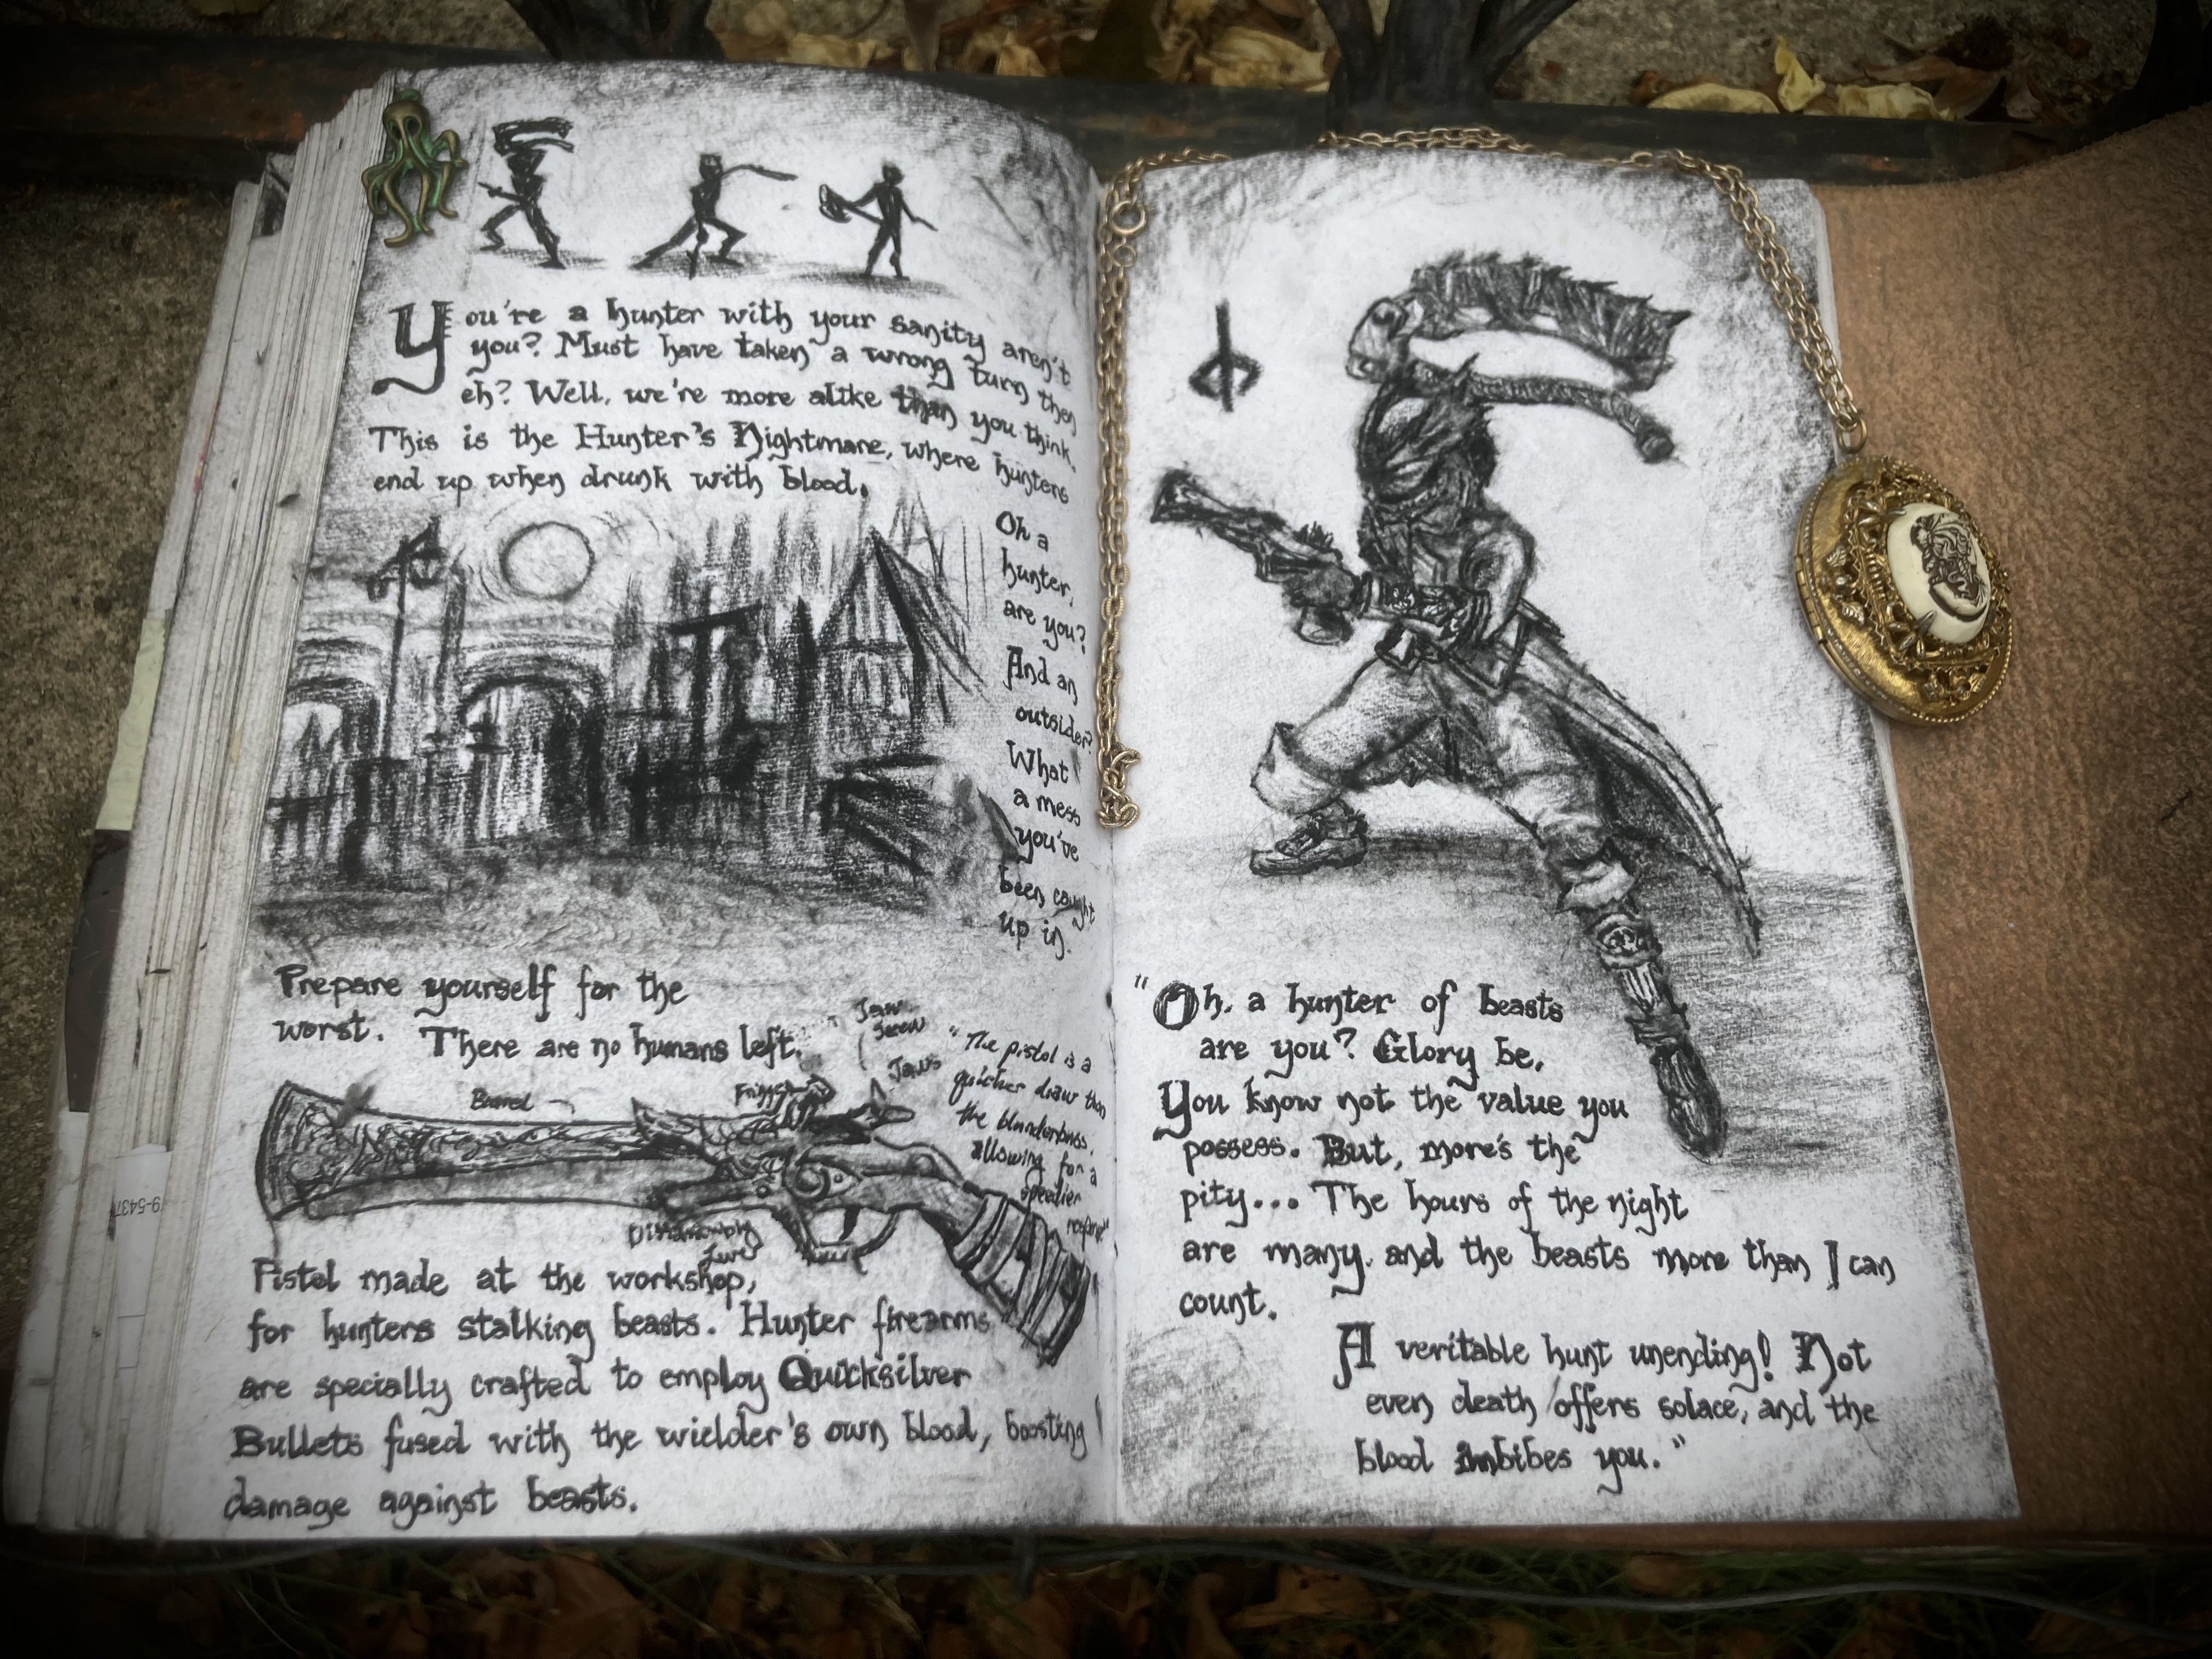 You're a hunter with your sanity aren't
you? Must have taken a wrong turn then
eh? Well, we're more alike than you think.
This is the Hunter's Nightmare, where hunters
end up when drunk with blood.
Oh a
hunter,
are you?
And an
outsider?
What
a mess
you've
been caught
up in."
Prepare yourself for the
worst. There are no humans left.
Jaw
Screw
Jaws
Barrel
"The pistol is a
quicker draw than
the blunderbuss,
allowing for a
speedier
Pistol made at the workshop,
for hunters stalking beasts. Hunter firearms
are specially crafted to employ Quicksilver
Bullets fused with the wielder's own blood, boosting
damage against beasts.
9-5437
"Oh, a hunter of beasts
are you? Glory be,
You know not the value you
possess. But, more's the
pity... The hours of the night
are many, and the beasts more than I can
count.
A veritable hunt unending! Not
even death offers solace, and the
blood imbibes you."